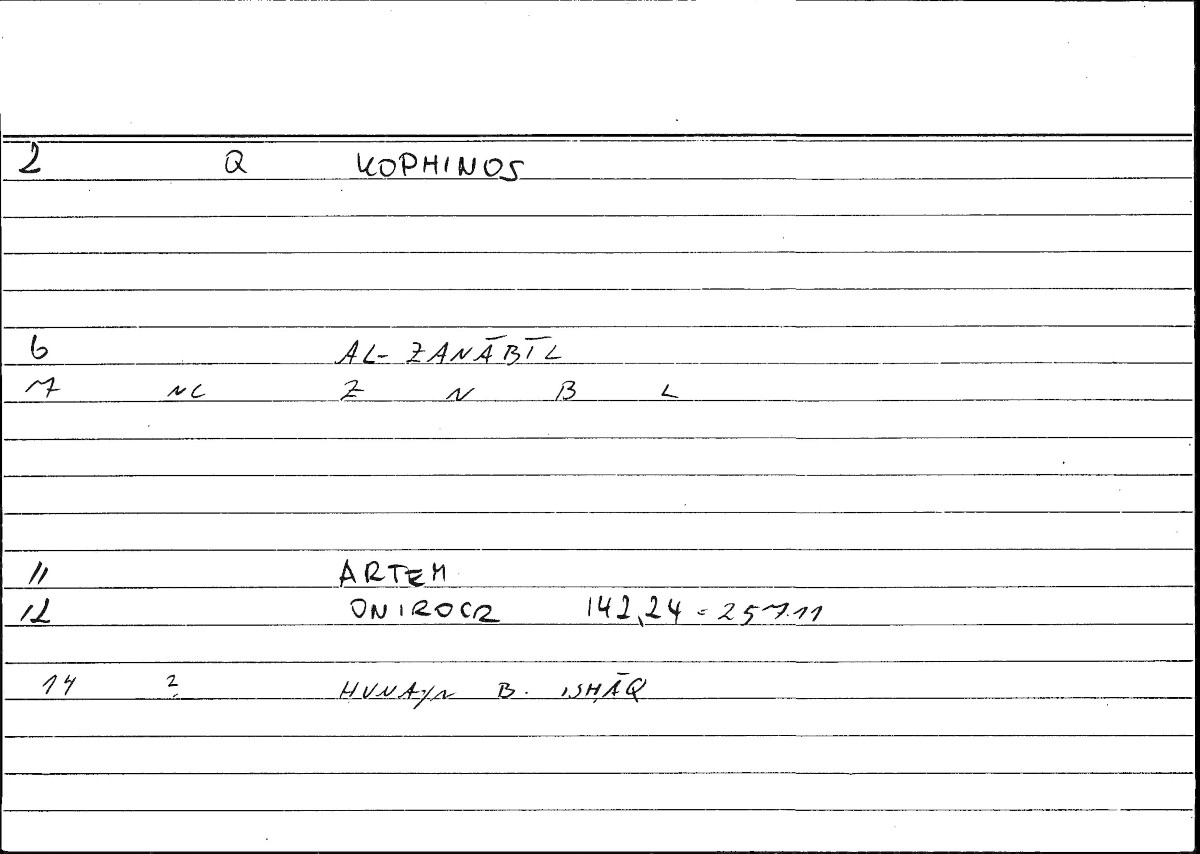 2 Q KOPHINOS
6 AL-ZANĀBĪL
7 NC Z N B L
11 ARTEM
12 ONIROCR 142,24 = 257.11
14 ? ḤUNAYN B. ISḤĀQ